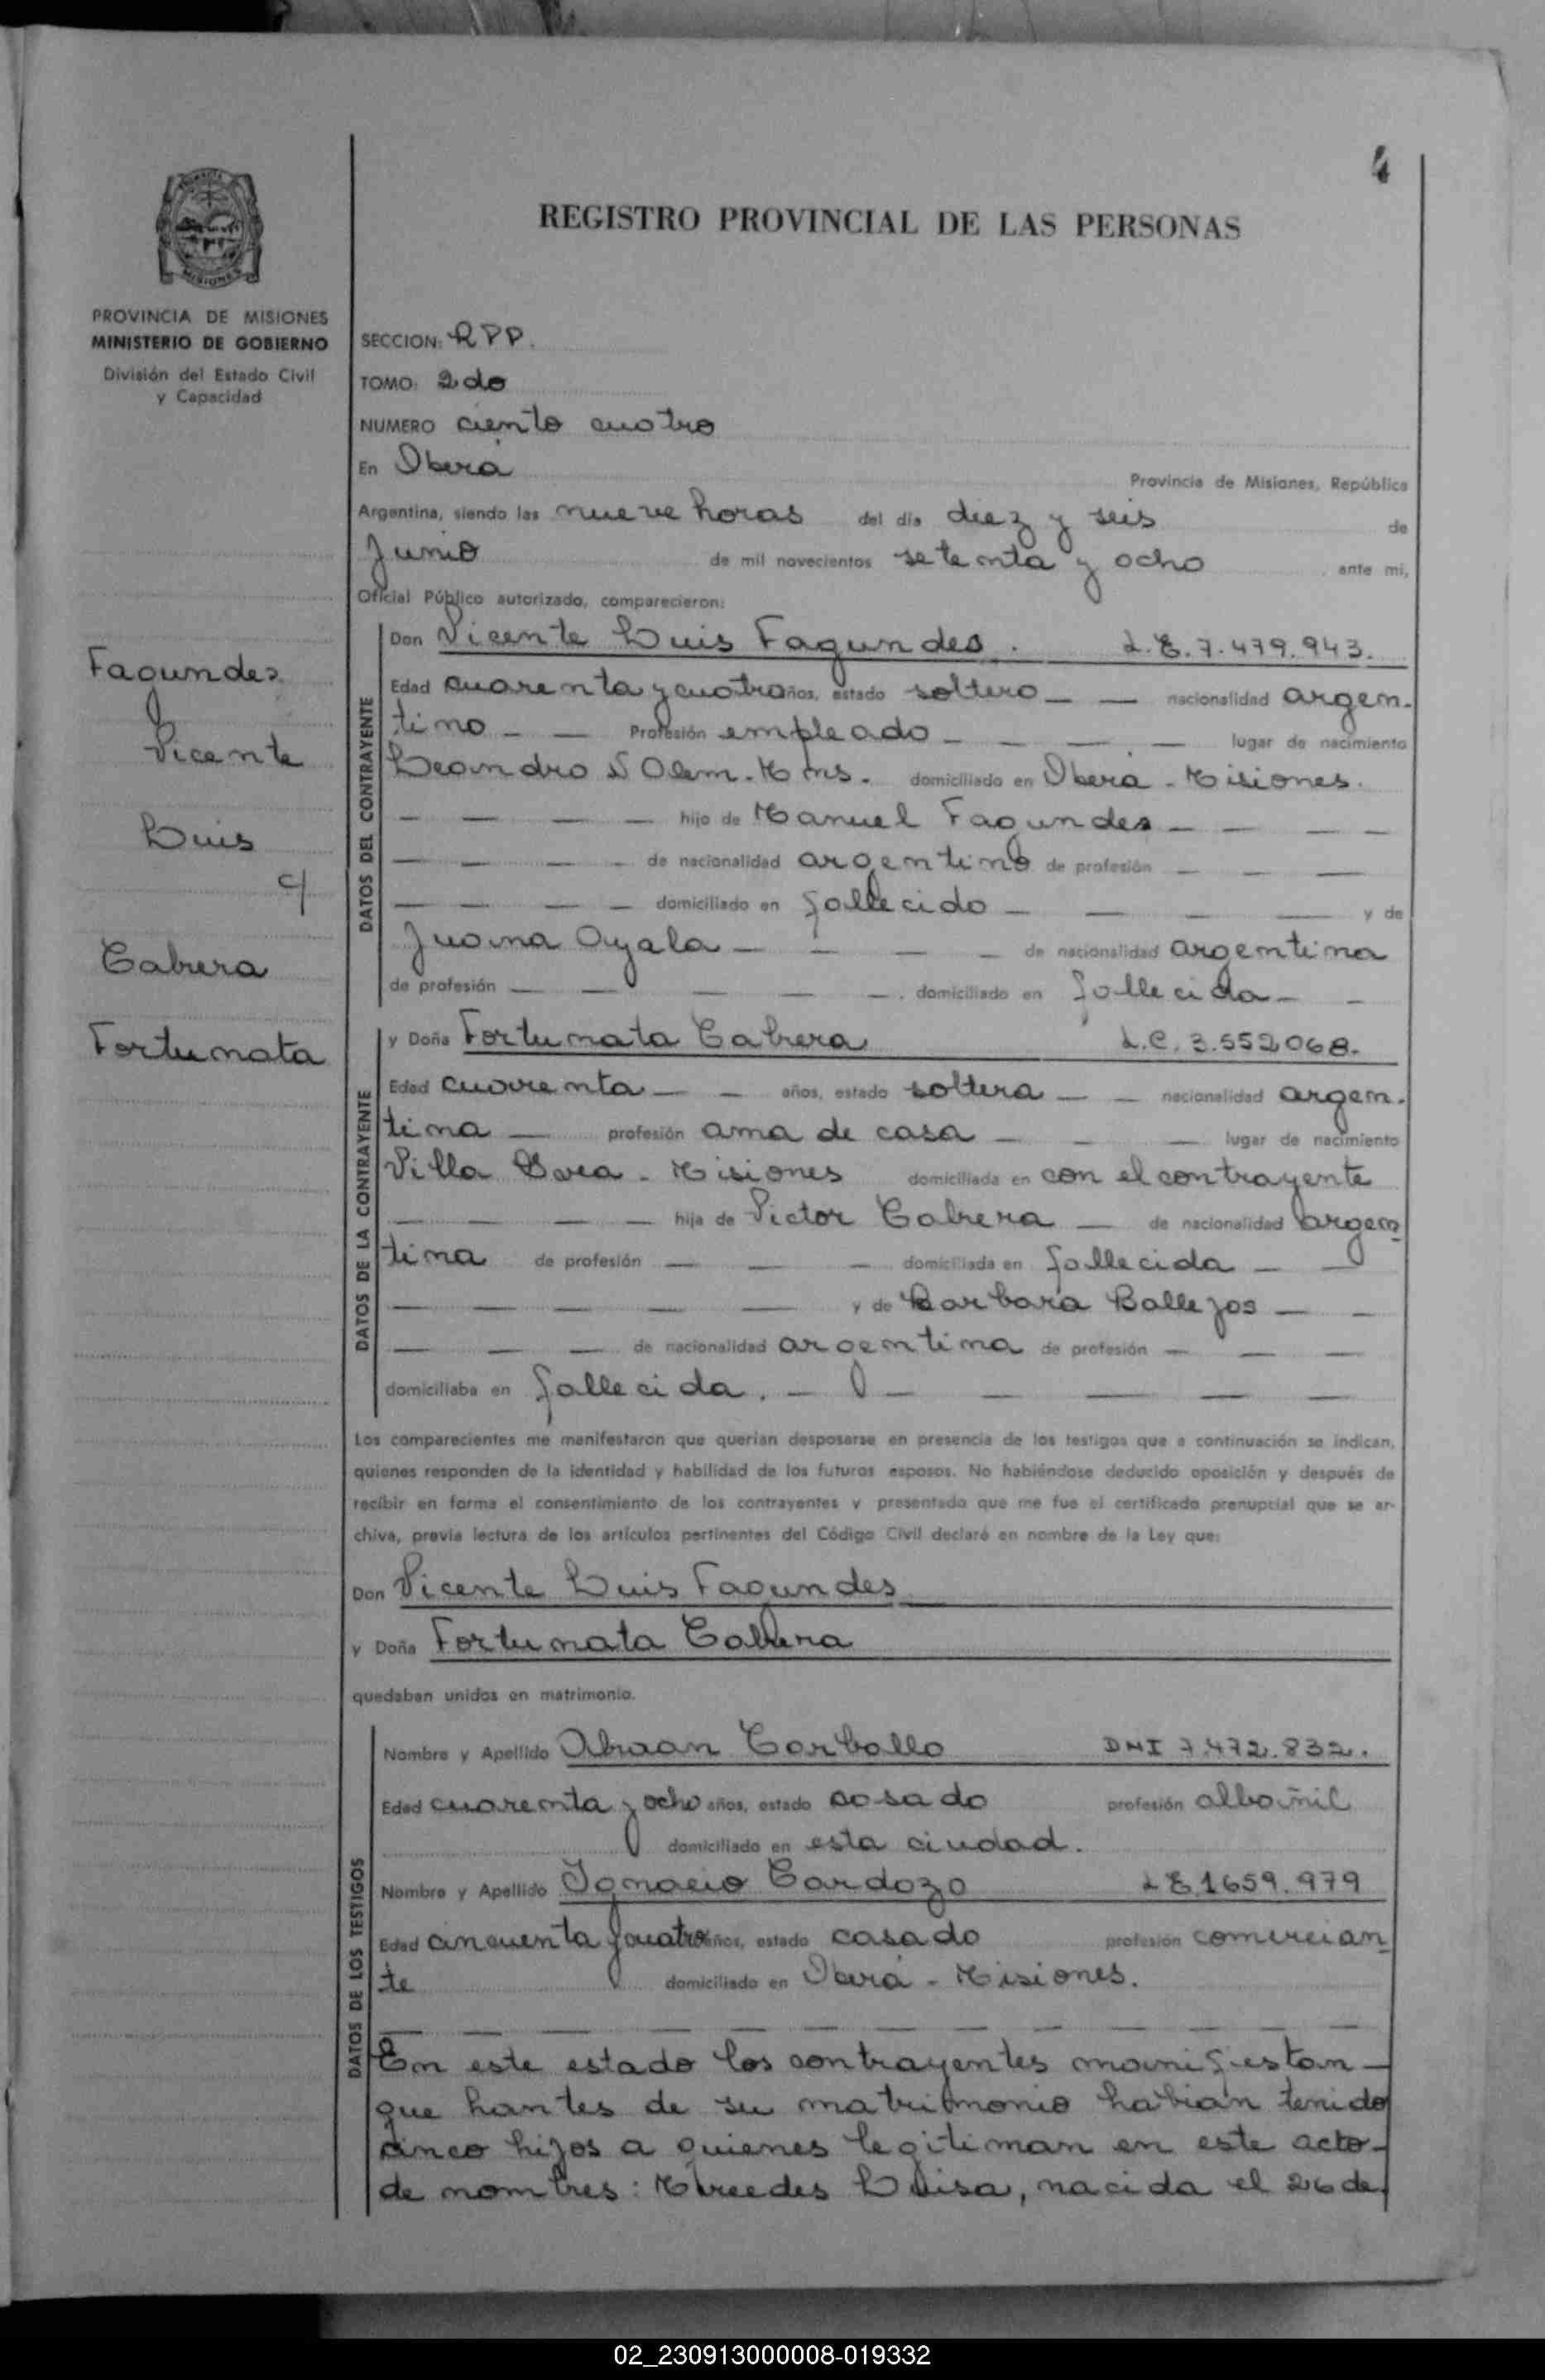 4
REGISTRO PROVINCIAL DE LAS PERSONAS
MISIONES
PROVINCIA DE MISIONES
MINISTERIO DE GOBIERNO
División del Estado Civil
y Capacidad
Fagundes
Vicente
Luis
c/
Cabrera
Fortunata
SECCION: RPP.
TOMO: 2do
NUMERO ciento cuatro
En Oberá Provincia de Misiones, República
Argentina, siendo las nueve horas del día diez y seis de
Junio de mil novecientos setenta y ocho, ante mi,
Oficial Público autorizado, comparecieron:
DATOS DEL CONTRAYENTE
Don Vicente Luis Fagundes. L.E. 7.479.943.
Edad cuarenta y cuatro años, estado soltero — — nacionalidad argen-
tino — — Profesión empleado — — — — lugar de nacimiento
Leandro N Alem. Mns. domiciliado en Oberá - Misiones.
— — — — hijo de Manuel Fagundes — — — —
— — — — de nacionalidad argentino de profesión — — —
— — — — domiciliado en fallecido — — — — y de
Juana Ayala — — — — de nacionalidad argentina
de profesión — — — — —. domiciliado en fallecida — —
DATOS DE LA CONTRAYENTE
y Doña Fortunata Cabrera L.C. 3.552068.
Edad cuarenta — — años, estado soltera — — nacionalidad argen-
tina — profesión ama de casa — — — lugar de nacimiento
Villa Misiones domiciliada en con el contrayente
— — — — hija de Victor Cabrera — de nacionalidad argen
tina de profesión — — — domiciliada en fallecida — —
— — — — — y de Barbara Ballejos — —
— — — de nacionalidad argentina de profesión — — —
domiciliaba en fallecida. — — — — — —
Los comparecientes me manifestaron que querían desposarse en presencia de los testigos que a continuación se indican,
quienes responden de la identidad y habilidad de los futuros esposos. No habiéndose deducido oposición y después de
recibir en forma el consentimiento de los contrayentes y presentado que me fue el certificado prenupcial que se ar-
chiva, previa lectura de los artículos pertinentes del Código Civil declaré en nombre de la Ley que:
Don Vicente Luis Fagundes
y Doña Fortunata Cabrera
quedaban unidos en matrimonio.
DATOS DE LOS TESTIGOS
Nombre y Apellido Abraan Carballo DNI 7.472.832.
Edad cuarenta y ocho años, estado casado profesión albañil
domiciliado en esta ciudad.
Nombre y Apellido Ignacio Cardozo LE 1659.979
Edad cincuenta y cuatro años, estado casado profesión comercian
te domiciliado en Oberá - Misiones.
— — — — — — — — — — — —
En este estado los contrayentes manifiestan —
que hantes de su matrimonio habian tenido
cinco hijos a quienes legitiman en este acto -
de nombres: Mercedes Luisa, nacida el 26 de
02_230913000008-019332